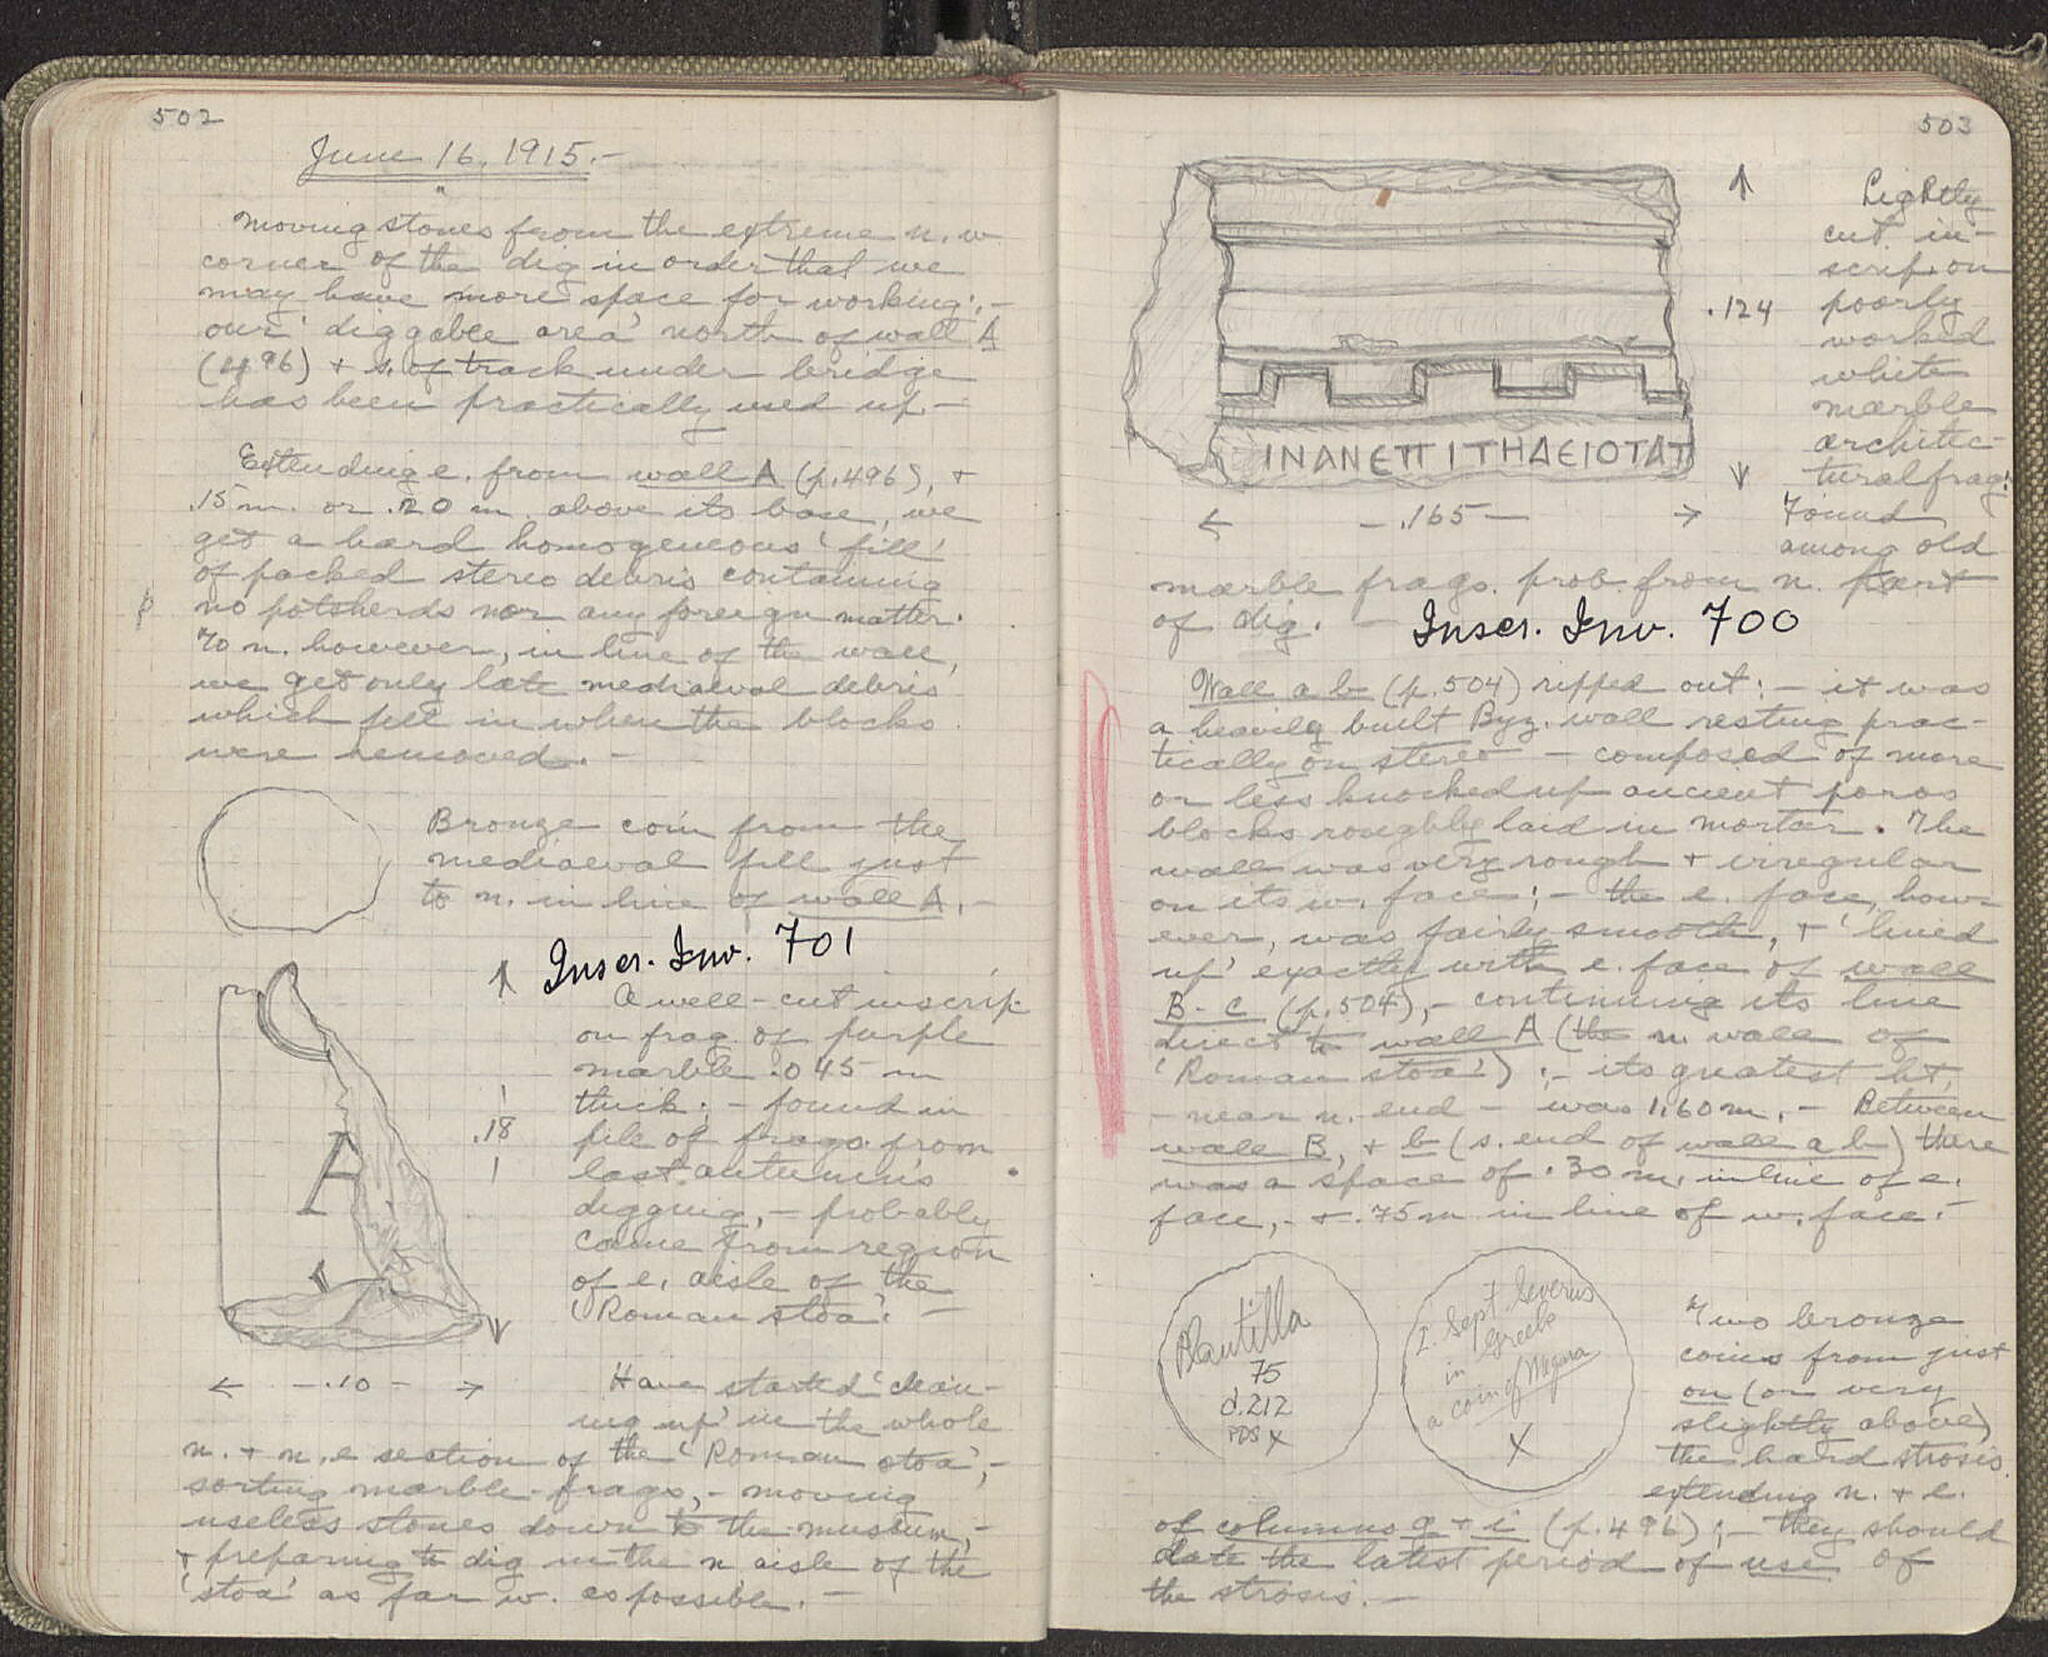 502
June 16, 1915.–
Moving stones from the extreme n. w
corner of the dig in order that we
may have more space for working:,–
our 'diggable area' north of wall A
(496) + s. of track under bridge
has been practically used up.–
Extending e. from wall A (p.496), +
.15 m. or .20 m. above its base, we
get a hard homogeneous 'fill'
of packed stereo debris containing
no potsherds nor any foreign matter.
To n. however, in line of the wall,
we get only late mediaeval debris
which fell in when the blocks
were removed.–
Bronze coin from the
mediaeval fill just
to n. in line of wall A.–
Inscr. Inv. 701
A well-cut inscrip.
on frag. of purple
marble .045 m
thick; – found in
pile of frags. from
last autumn's
digging, – probably
came from region
of e. aisle of the
'Roman stoa'. –
A
.18
← – .10 – →
Have started 'clean-
ing up' in the whole
n. + n.e section of the 'Roman stoa', –
sorting marble frags, – moving
useless stones down to the museum, –
+ preparing to dig in the n aisle of the
'stoa' as far w. as possible. –
503
ΙΝΑΝΕΠΙΤΗΔΕΙΟΤΑΤ
.124
← – .165 – →
Lightly
cut in-
scrip. on
poorly
worked
white
marble
architec-
tural frag:
Found
among old
marble frags. prob. from n. part
of dig. –
Inscr. Inv. 700
Wall a b (p.504) ripped out: – it was
a heavily built Byz. wall resting prac-
tically on stereo – composed of more
or less knocked up ancient poros
blocks roughly laid in mortar. The
wall was very rough + irregular
on its w. face; – the e. face, how-
ever, was fairly smooth, + 'lined
up' exactly with e. face of wall
B-C (p.504), – continuing its line
direct to wall A (the n. wall of
'Roman stoa') :– its greatest ht,
– near n. end – was 1.60 m. – Between
wall B, + b (s. end of wall a b) there
was a space of .30 m. in line of e.
face, – + .75 m in line of w. face. –
Plautilla
75
d.212
PDS X
I. Sept Severus
in Greek
a coin of Megara
X
Two bronze
coins from just
on (or very
slightly above)
the hard strosis
extending n. + e.
of columns g + i (p.496); – they should
date the latest period of use of
the strosis. –